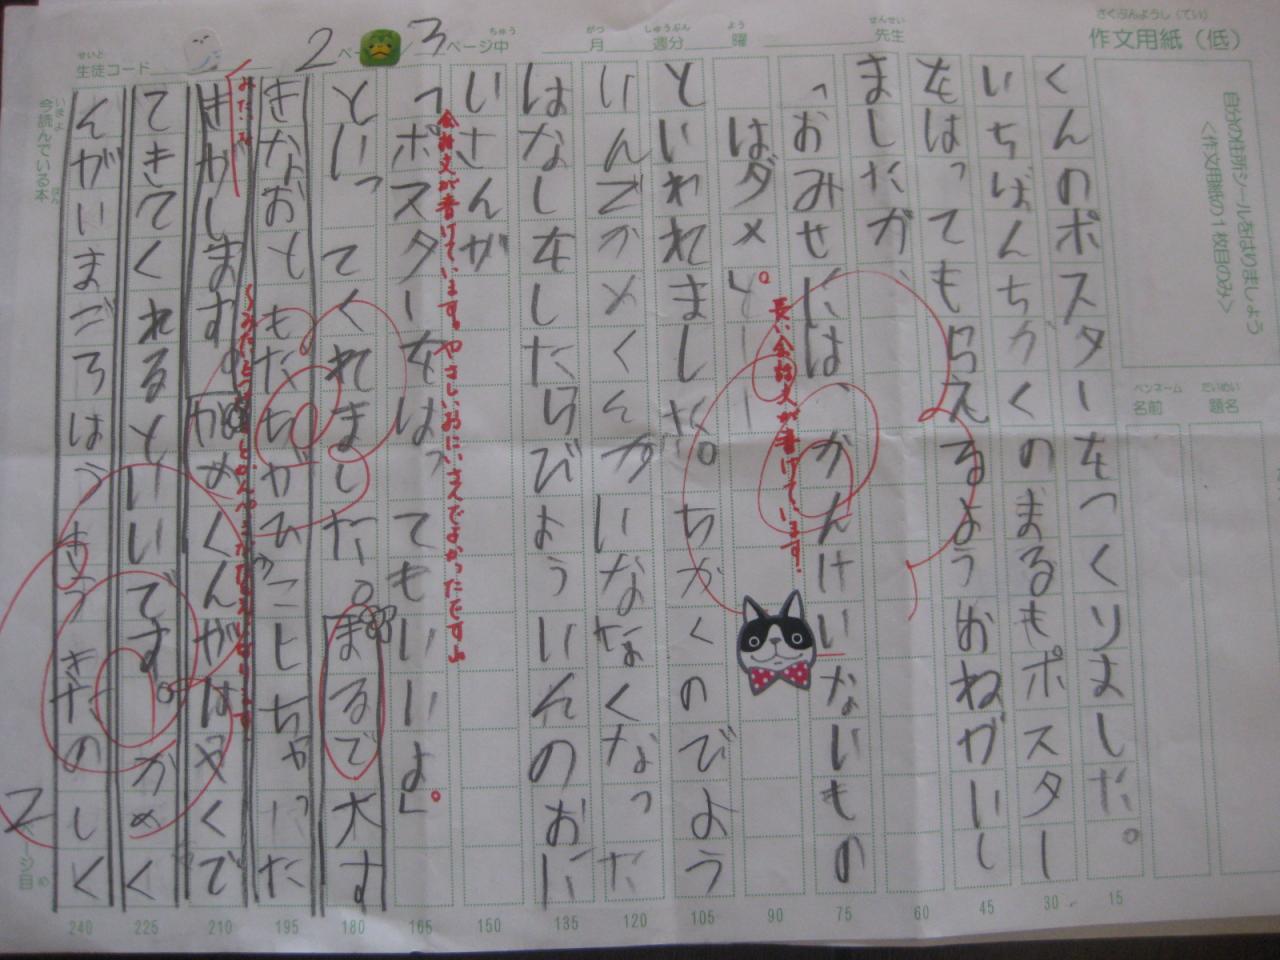 さくぶんようし(てい)
作文用紙(低)
せんせい
先生
よう
曜
しゅうぶん
週分
がつ
月
ちゅう
2ページ/3ページ中
せいと
生徒コード
自分の住所シールをはりましょう
<作文用紙の1枚目のみ>
だいめい
題名
ペンネーム
名前
くんのポスターをつくりました。
いちばんちかくのまるもポスター
をはってもらえるようおねがいし
ましたが、
「おみせには、かんけいないもの
はダメ。
といわれました。ちかくのびよう
いんでかめくんがいなくなった
はなしをしたらびよういんのおに
いさんが
「ポスターをはってもいいよ」。
といってくれました。まるで大す
きなおともだちがひっこしちゃった
きがします。かめくんがはやくで
てきてくれるといいです。かめく
んがいまごろはうきうきたのしく
長い会話文が書けています。
会話文が書けています。やさしいおにいさんでよかったですね
みたいな
15
30
45
60
75
90
105
120
135
150
165
180
195
210
225
240
いまよ ほん
今読んでいる本
2ページ目